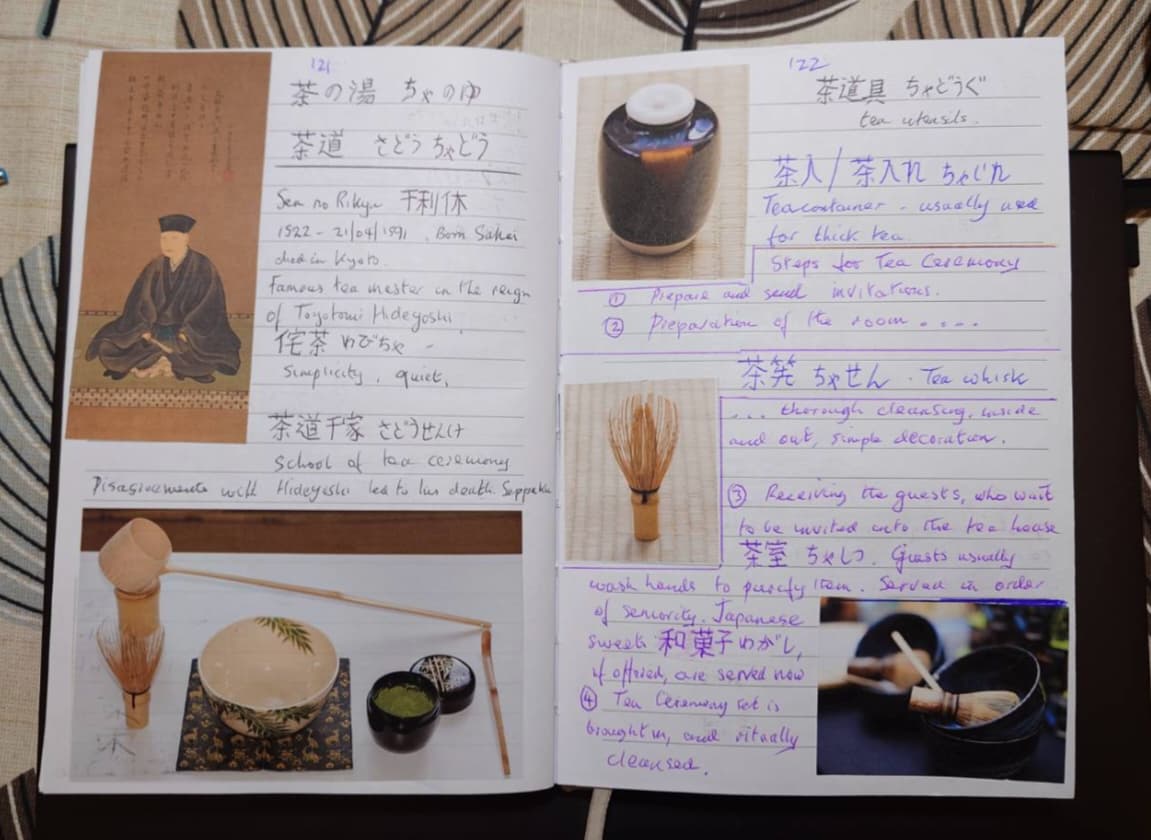 121
茶の湯 ちゃのゆ
茶道 さどう ちゃどう
Sen no Rikyu 千利休
1522 - 21/04/1591. Born Sakai
died in Kyoto.
Famous tea master in the reign
of Toyotomi Hideyoshi
侘茶 わびちゃ -
Simplicity, quiet,
茶道千家 さどうせんけ
School of tea ceremony
Disagreements with Hideyoshi led to his death. Seppuku
122
茶道具 ちゃどうぐ
tea utensils.
茶入/茶入れ ちゃいれ
Tea container - usually used
for thick tea
Steps for Tea Ceremony
① Prepare and send invitations.
② Preparation of the room ....
茶筅 ちゃせん . Tea whisk
... thorough cleansing, inside
and out, simple decoration.
③ Receiving the guests, who wait
to be invited into the tea house
茶室 ちゃしつ. Guests usually
wash hands to purify them. Served in order
of seniority. Japanese
sweets 和菓子 わがし,
if offered, are served now
④ Tea Ceremony set is
brought in, and ritually
cleansed.